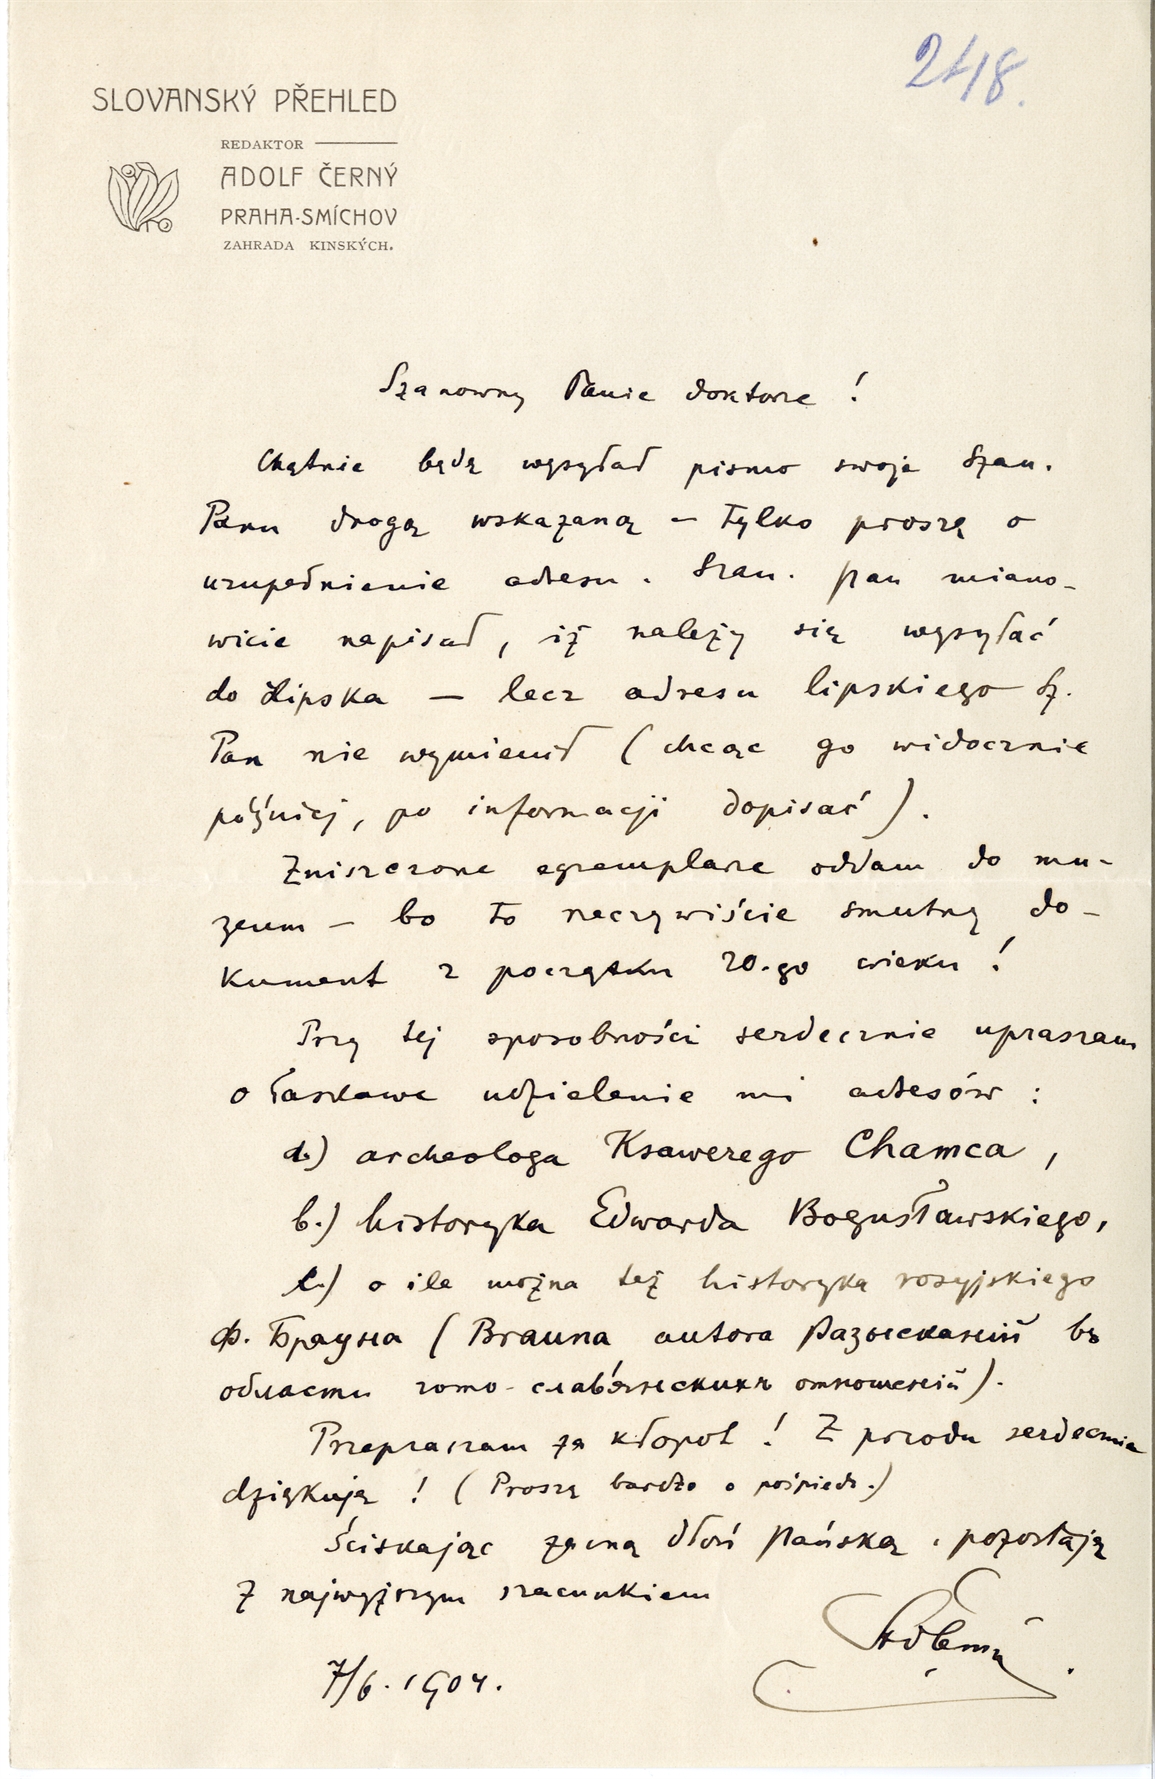 248.
SLOVANSKÝ PŘEHLED
REDAKTOR
ADOLF ČERNÝ
PRAHA-SMÍCHOV
ZAHRADA KINSKÝCH.
Szanowny Panie doktorze !
Chętnie będę wysyłał pismo swoje Szan.
Panu drogą wskazaną – tylko proszę o
uzupełnienie adresu. Szan. Pan miano-
wicie napisał, iż należy się wysyłać
do Lipska — lecz adresu lipskiego Sz.
Pan nie wymienił (chcąc go widocznie
później, po informacji dopisać).
Zniszczone egzemplarze oddam do mu-
zeum – bo to rzeczywiście smutny do-
kument z początku 20.go wieku !
Przy tej sposobności serdecznie upraszam
o łaskawe udzielenie mi adresów :
a.) archeologa Ksawerego Chamca,
b.) historyka Edwarda Bogusławskiego,
c.) o ile można też historyka rosyjskiego
Ф. Брауна (Brauna autora Разысканий въ
области гото-славянскихъ отношеній).
Przepraszam za kłopot ! Z przodu serdecznie
dziękuję ! (Proszę bardzo o pośpiech.)
Ściskając zacną dłoń Pańską, pozostaję
z najwyższym szacunkiem
AdČerný.
7/6. 1904.